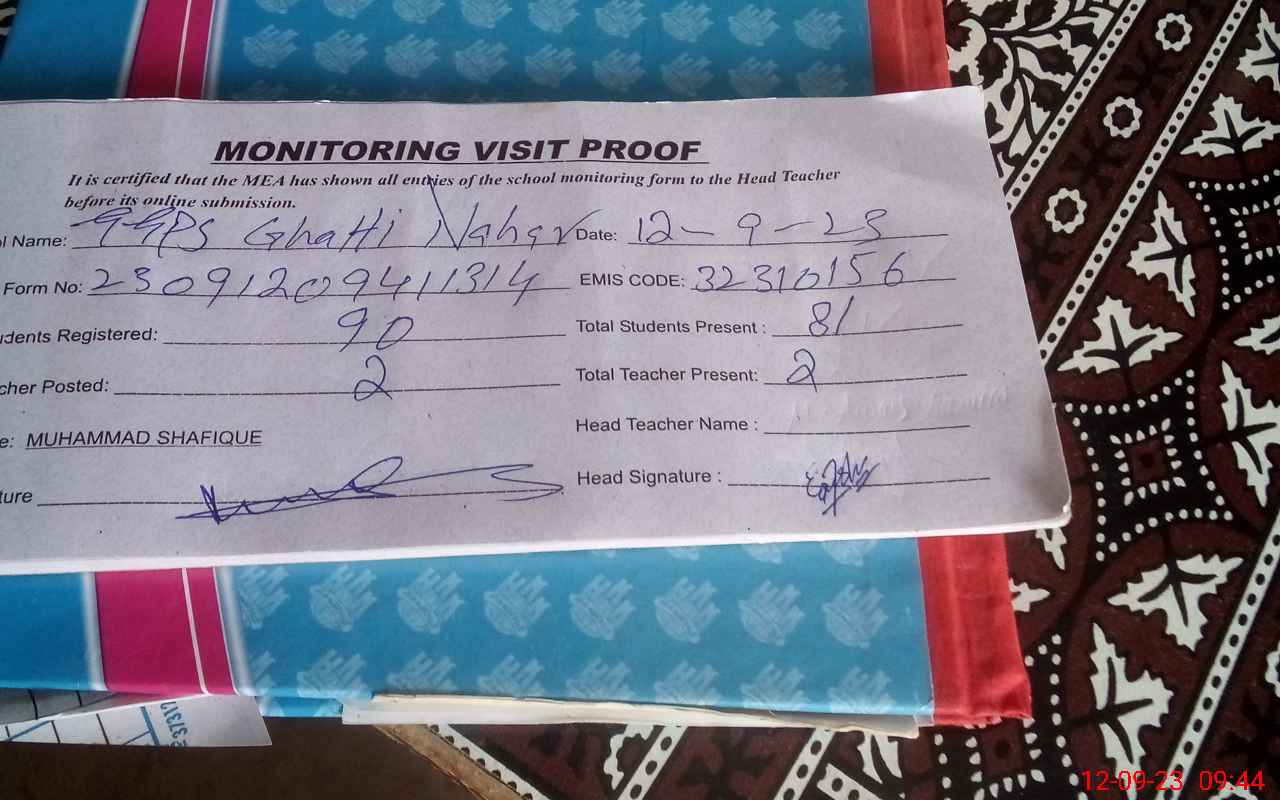 MONITORING VISIT PROOF
It is certified that the MEA has shown all entries of the school monitoring form to the Head Teacher
before its online submission.
ol Name: GGPS Ghatti Nahar Date: 12-9-23
Form No: 23091209411314 EMIS CODE: 32310156
udents Registered: 90 Total Students Present : 81
cher Posted: 2 Total Teacher Present: 2
Head Teacher Name :
e: MUHAMMAD SHAFIQUE
ture Head Signature :
12-09-23 09:44